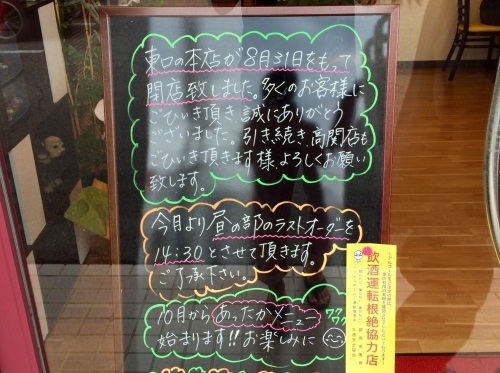 東口の本店が8月31日をもって
閉店致しました。多くのお客様に
ごひいき頂き、誠にありがとう
ございました。引き続き、高関店も
ごひいき頂きます様、よろしくお願い
致します。
今月より昼の部のラストオーダーを
14:30とさせて頂きます。
ご了承下さい。
10月からあったかメニュー
始まります!!お楽しみに
飲酒運転根絶協力店